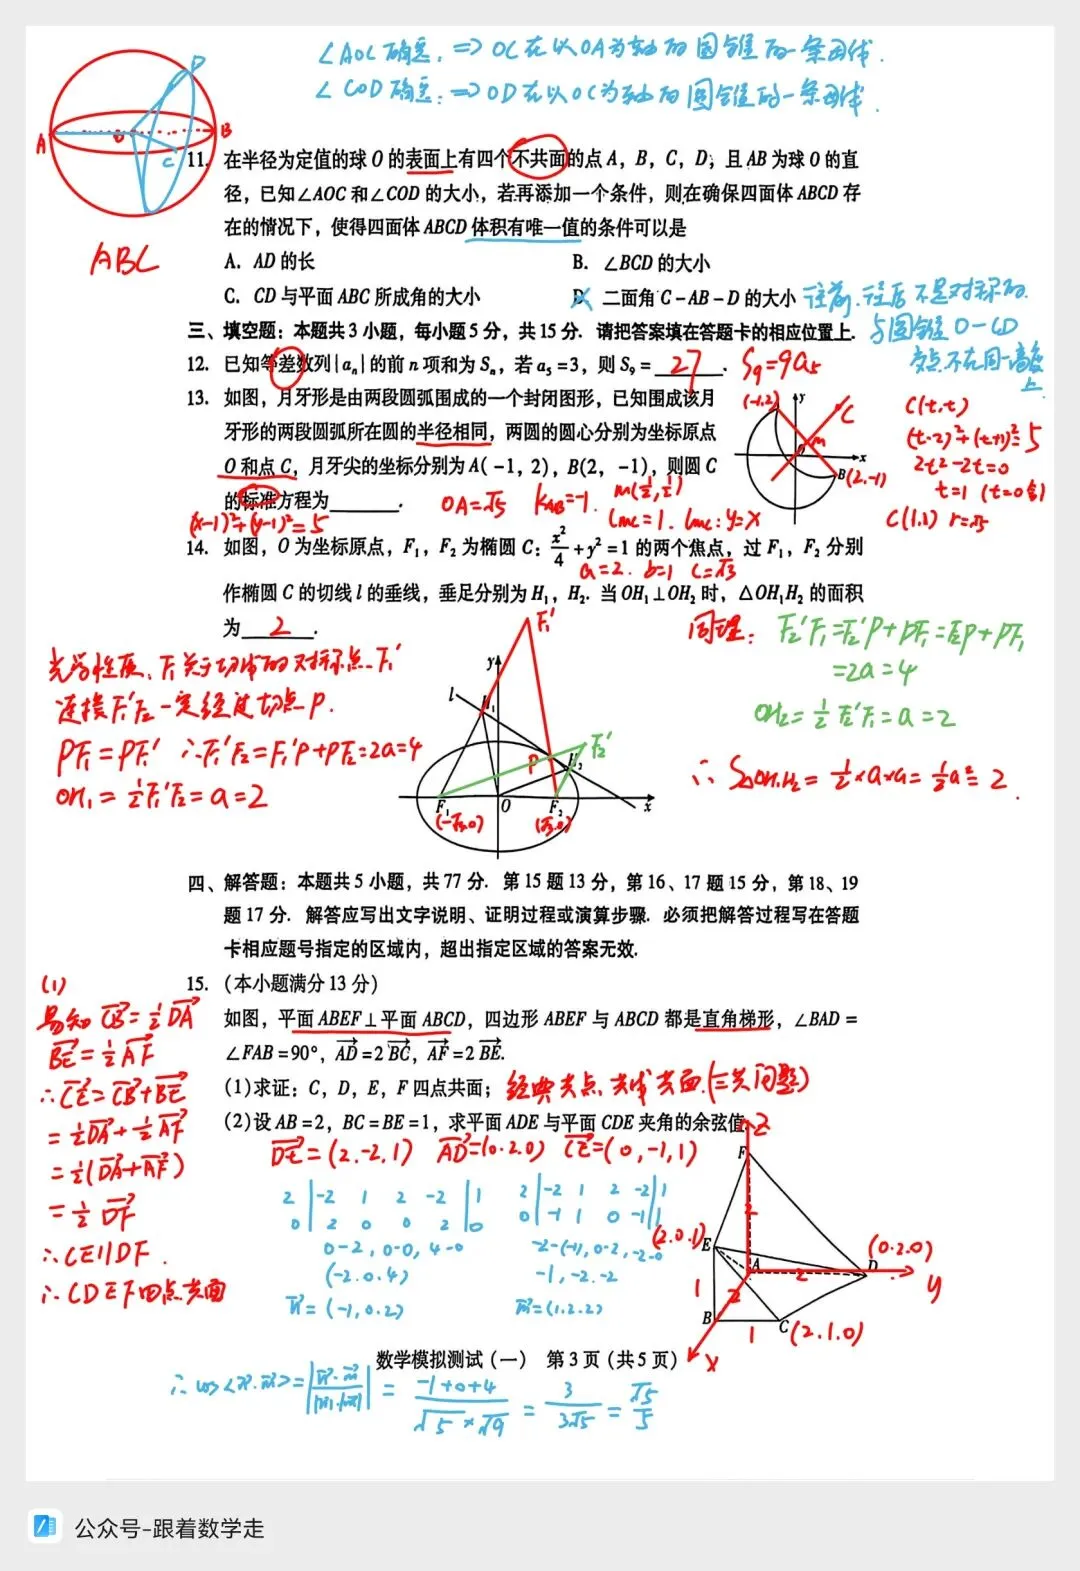 ∠AOC确定. ⇒ OC在以OA为轴的圆锥的一条母线.
∠COD确定. ⇒ OD在以OC为轴的圆锥的一条母线.
A
B
C
D
O
ABC
11. 在半径为定值的球 O 的表面上有四个不共面的点 A，B，C，D，且 AB 为球 O 的直
径，已知∠AOC 和∠COD 的大小，若再添加一个条件，则在确保四面体 ABCD 存
在的情况下，使得四面体 ABCD 体积有唯一值的条件可以是
A. AD 的长
B. ∠BCD 的大小
C. CD 与平面 ABC 所成角的大小
D. 二面角 C-AB-D 的大小
往前.往后不是对称的.
与圆锥O-CD
交点不在同一高度
上
三、填空题：本题共 3 小题，每小题 5 分，共 15 分. 请把答案填在答题卡的相应位置上.
12. 已知等差数列{aₙ}的前 n 项和为 Sₙ，若 a₅=3，则 S₉= 27 .
S₉=9a₅
13. 如图，月牙形是由两段圆弧围成的一个封闭图形，已知围成该月
牙形的两段圆弧所在圆的半径相同，两圆的圆心分别为坐标原点
O 和点 C，月牙尖的坐标分别为 A(-1，2)，B(2，-1)，则圆 C
的标准方程为 ______.
(x-1)²+(y-1)²=5
OA=√5 K_AB=-1 M(½,½)
l_MC=1. l_MC: y=x
(-1,2)
y
C
M
O
x
B(2,-1)
C(t,t)
(t-2)²+(t+1)²=5
2t²-2t=0
t=1 (t=0舍)
C(1,1) r=√5
14. 如图，O 为坐标原点，F₁，F₂ 为椭圆 C：x²/4+y²=1 的两个焦点，过 F₁，F₂ 分别
a=2. b=1 c=√3
作椭圆 C 的切线 l 的垂线，垂足分别为 H₁，H₂. 当 OH₁⊥OH₂ 时，△OH₁H₂ 的面积
为 2 .
光学性质、F₁关于切线的对称点F₁'
连接F₁'F₂一定经过切点P.
PF₁=PF₁' ∴F₁'F₂=F₁'P+PF₂=2a=4
OH₁=½F₁'F₂=a=2
F₁'
y
l
H₁
F₂'
P
H₂
F₁
O
F₂
x
(-√3,0)
(√3,0)
同理:
F₂'F₁=F₂'P+PF₁=F₂P+PF₁
=2a=4
OH₂=½F₂'F₁=a=2
∴S△OH₁H₂=½×a×a=½a²=2.
四、解答题：本题共 5 小题，共 77 分. 第 15 题 13 分，第 16、17 题 15 分，第 18、19
题 17 分. 解答应写出文字说明、证明过程或演算步骤. 必须把解答过程写在答题
卡相应题号指定的区域内，超出指定区域的答案无效.
15. (本小题满分 13 分)
如图，平面 ABEF⊥平面 ABCD，四边形 ABEF 与 ABCD 都是直角梯形，∠BAD=
∠FAB=90°，AD=2BC，AF=2BE.
(1)求证：C，D，E，F 四点共面；
经典共点、共线共面.(三共问题)
(2)设 AB=2，BC=BE=1，求平面 ADE 与平面 CDE 夹角的余弦值.
(1)
易知 CB=½DA
BE=½AF
∴CE=CB+BE
=½DA+½AF
=½(DA+AF)
=½DF
∴CE∥DF.
∴CDEF四点共面
DE=(2,-2,1) AD=(0,2,0) CE=(0,-1,1)
2 | -2 1 2 -2 | 1
0 | 2 0 0 2 | 0
0-2, 0-0, 4-0
(-2,0,4)
n=(-1,0,2)
2 | -2 1 2 -2 | 1
0 | -1 1 0 -1 | 1
-2-(-1), 0-2, -2-0
-1,-2,-2
m=(1,2,2)
z
F
2
(2,0,1)
E
A
2
(0,2,0)
D
y
1
2
B
1
C
(2,1,0)
x
数学模拟测试(一) 第 3 页(共 5 页)
∴cos<n,m>=|n·m/|n|·|m||=(-1+0+4)/(√5×√9)=3/(3√5)=√5/5
公众号-跟着数学走